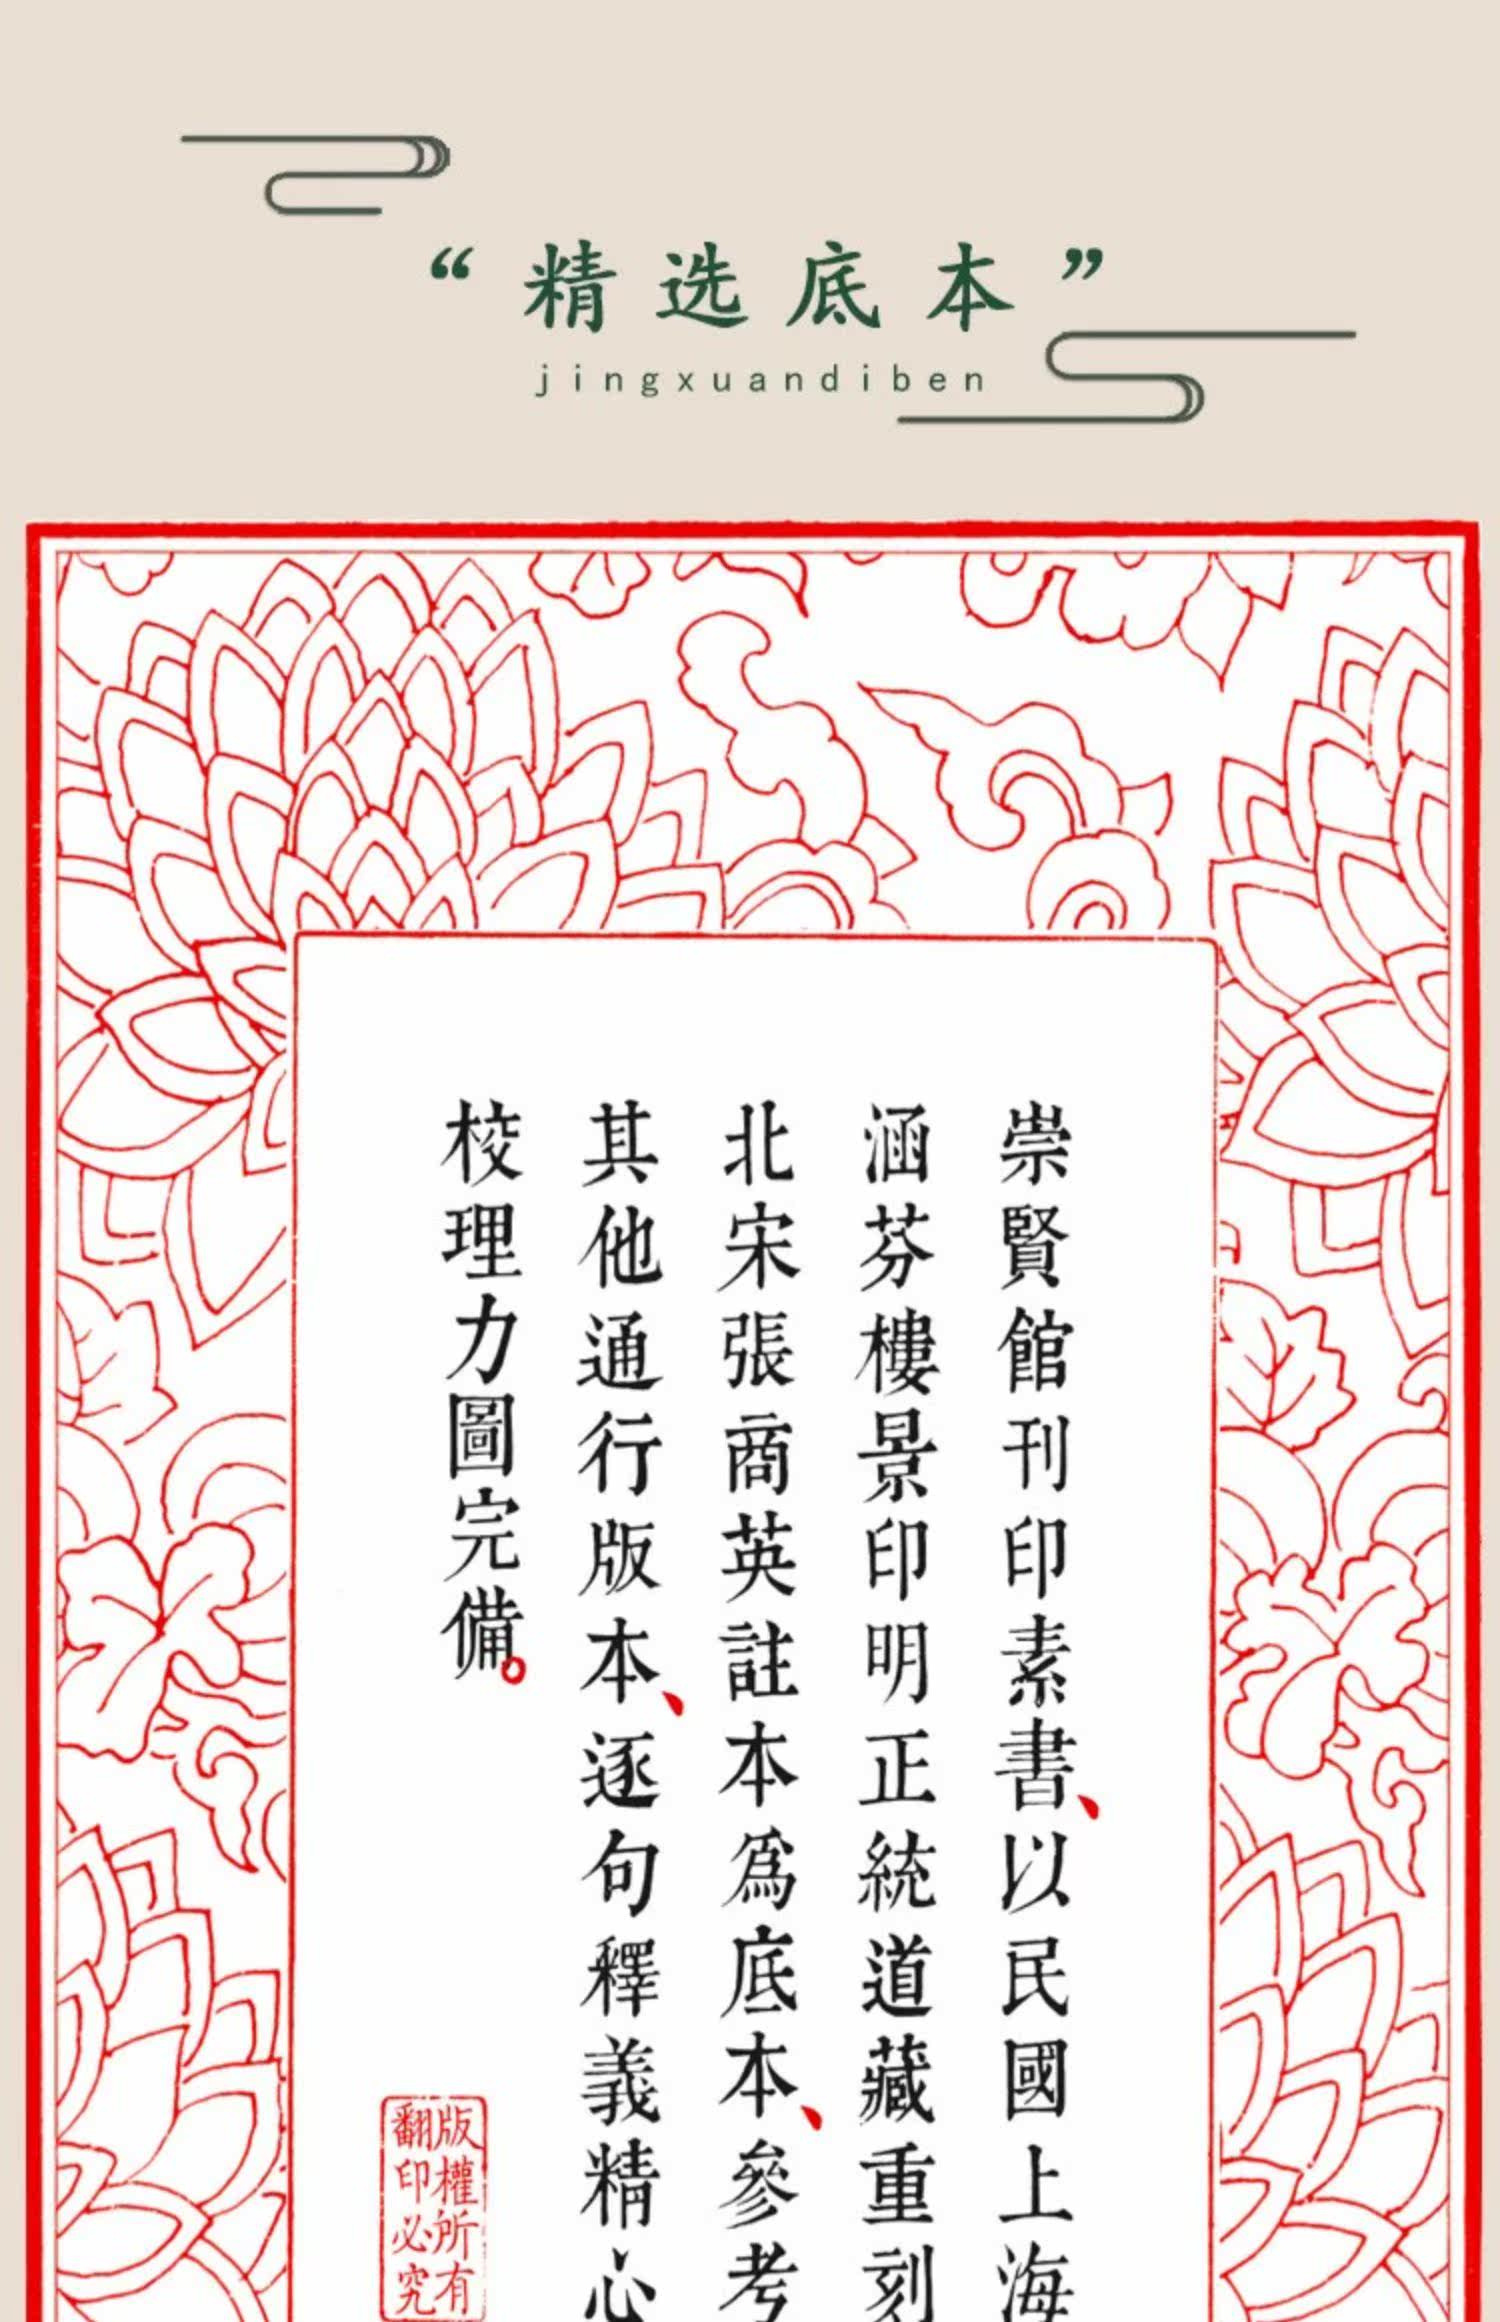 “精选底本”
jingxuandiben
崇賢館刊印素書、以民國上海
涵芬樓景印明正統道藏重刻
北宋張商英註本爲底本、參考
其他通行版本、逐句釋義精心
校理力圖完備。
版權所有
翻印必究